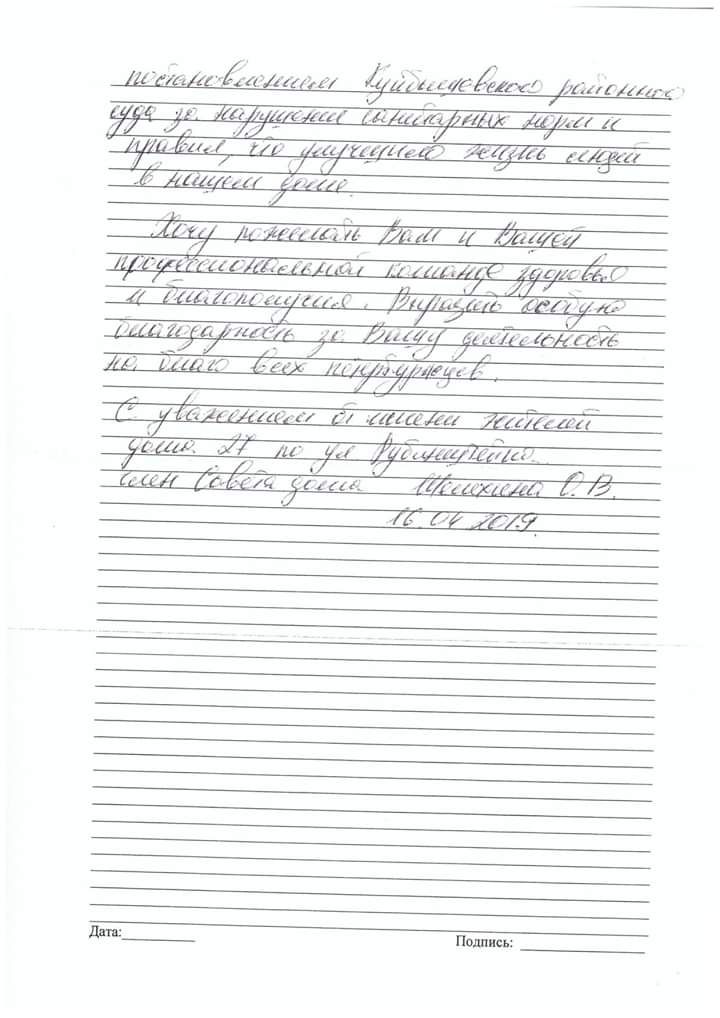 постановлением Куйбышевского районного
суда за нарушение санитарных норм и
правил, что улучшило жизнь людей
в нашем доме.
Хочу пожелать Вам и Вашей
профессиональной команде здоровья
и благополучия. Выразить особую
благодарность за Вашу деятельность
на благо всех петербуржцев.
С уважением от имени жителей
дома 27 по ул Рубинштейна
член Совета дома О.В.
16.04 2019.
Дата:
Подпись: